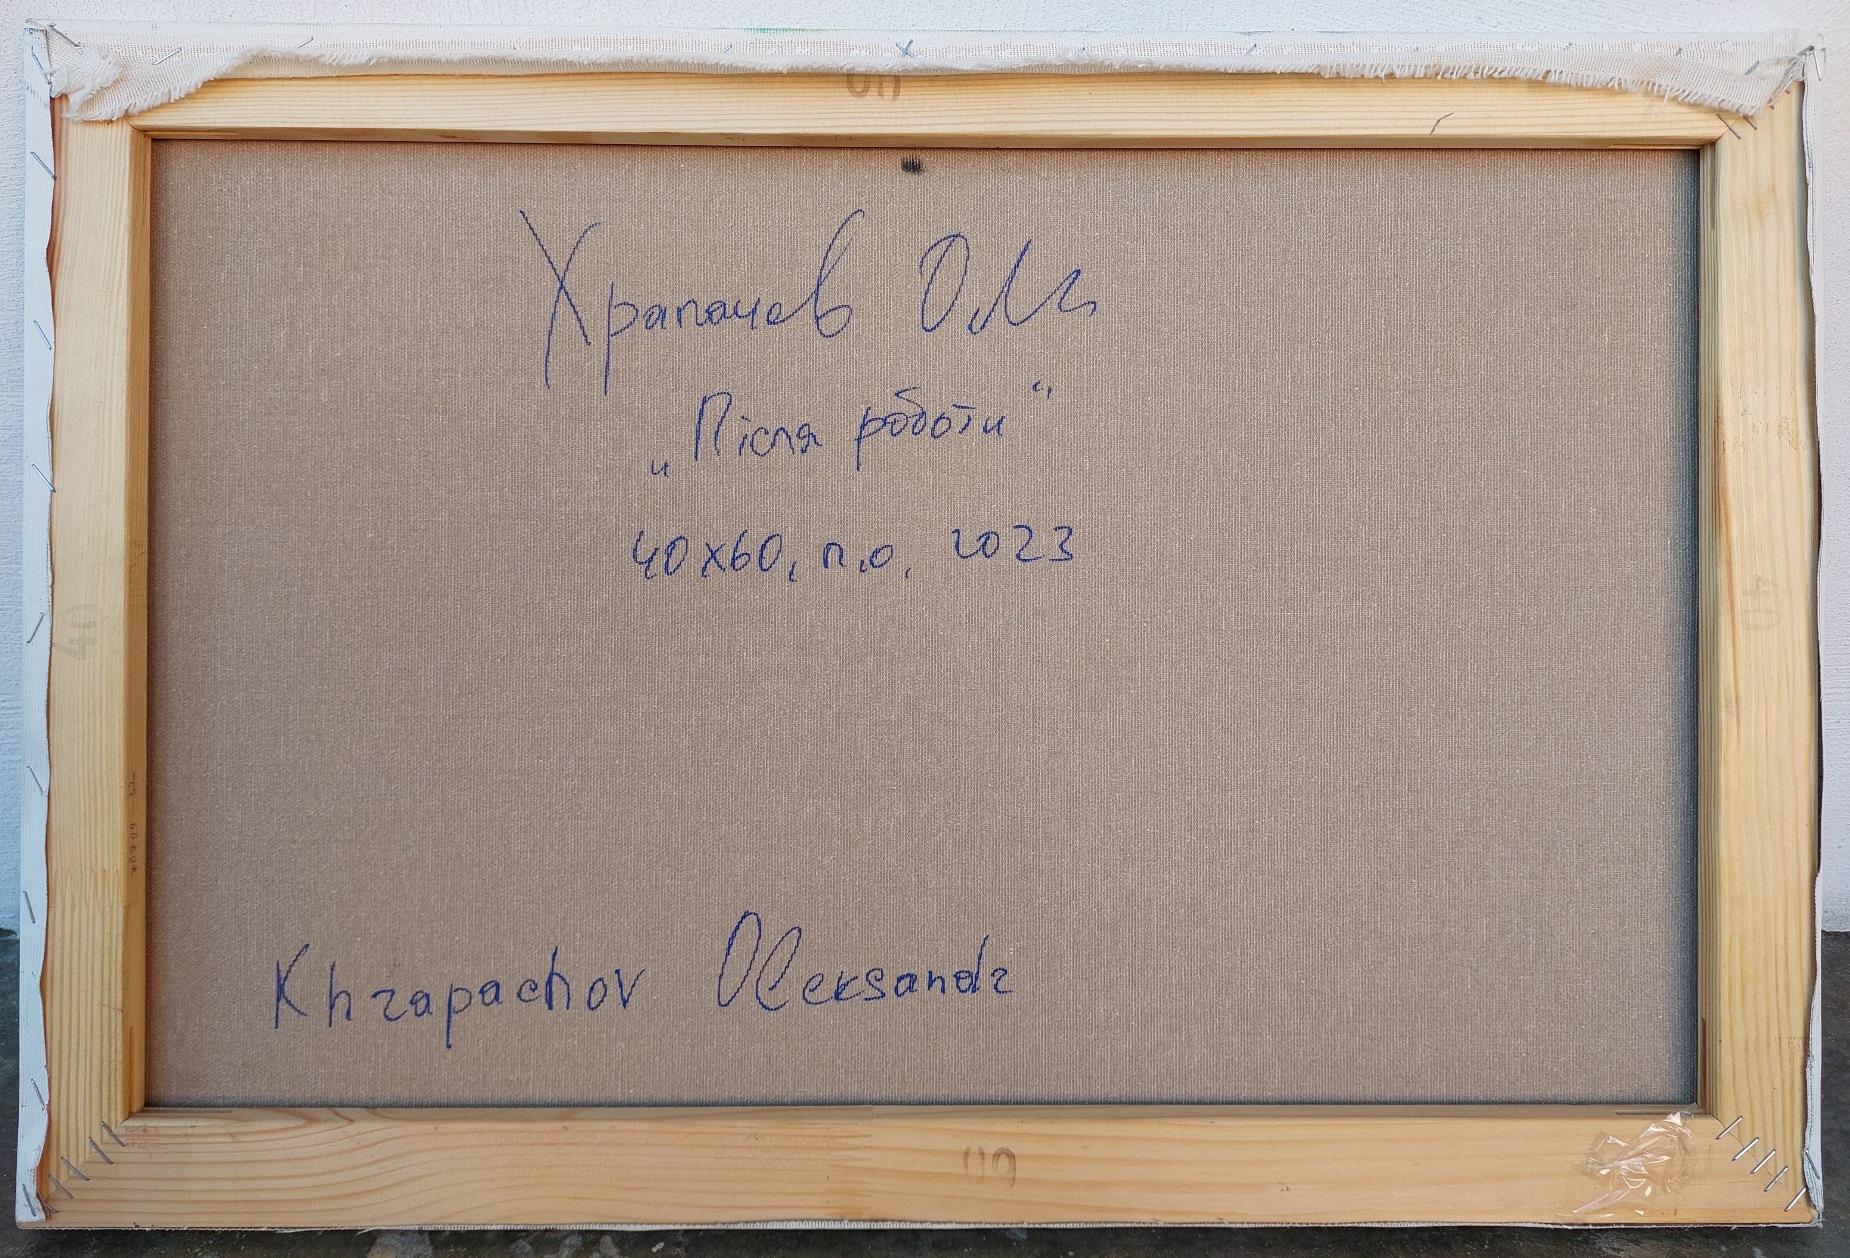 Храпачов О.М.
„Після роботи“
40х60, п.о, 2023
40
Khrapachov Oleksandr
60